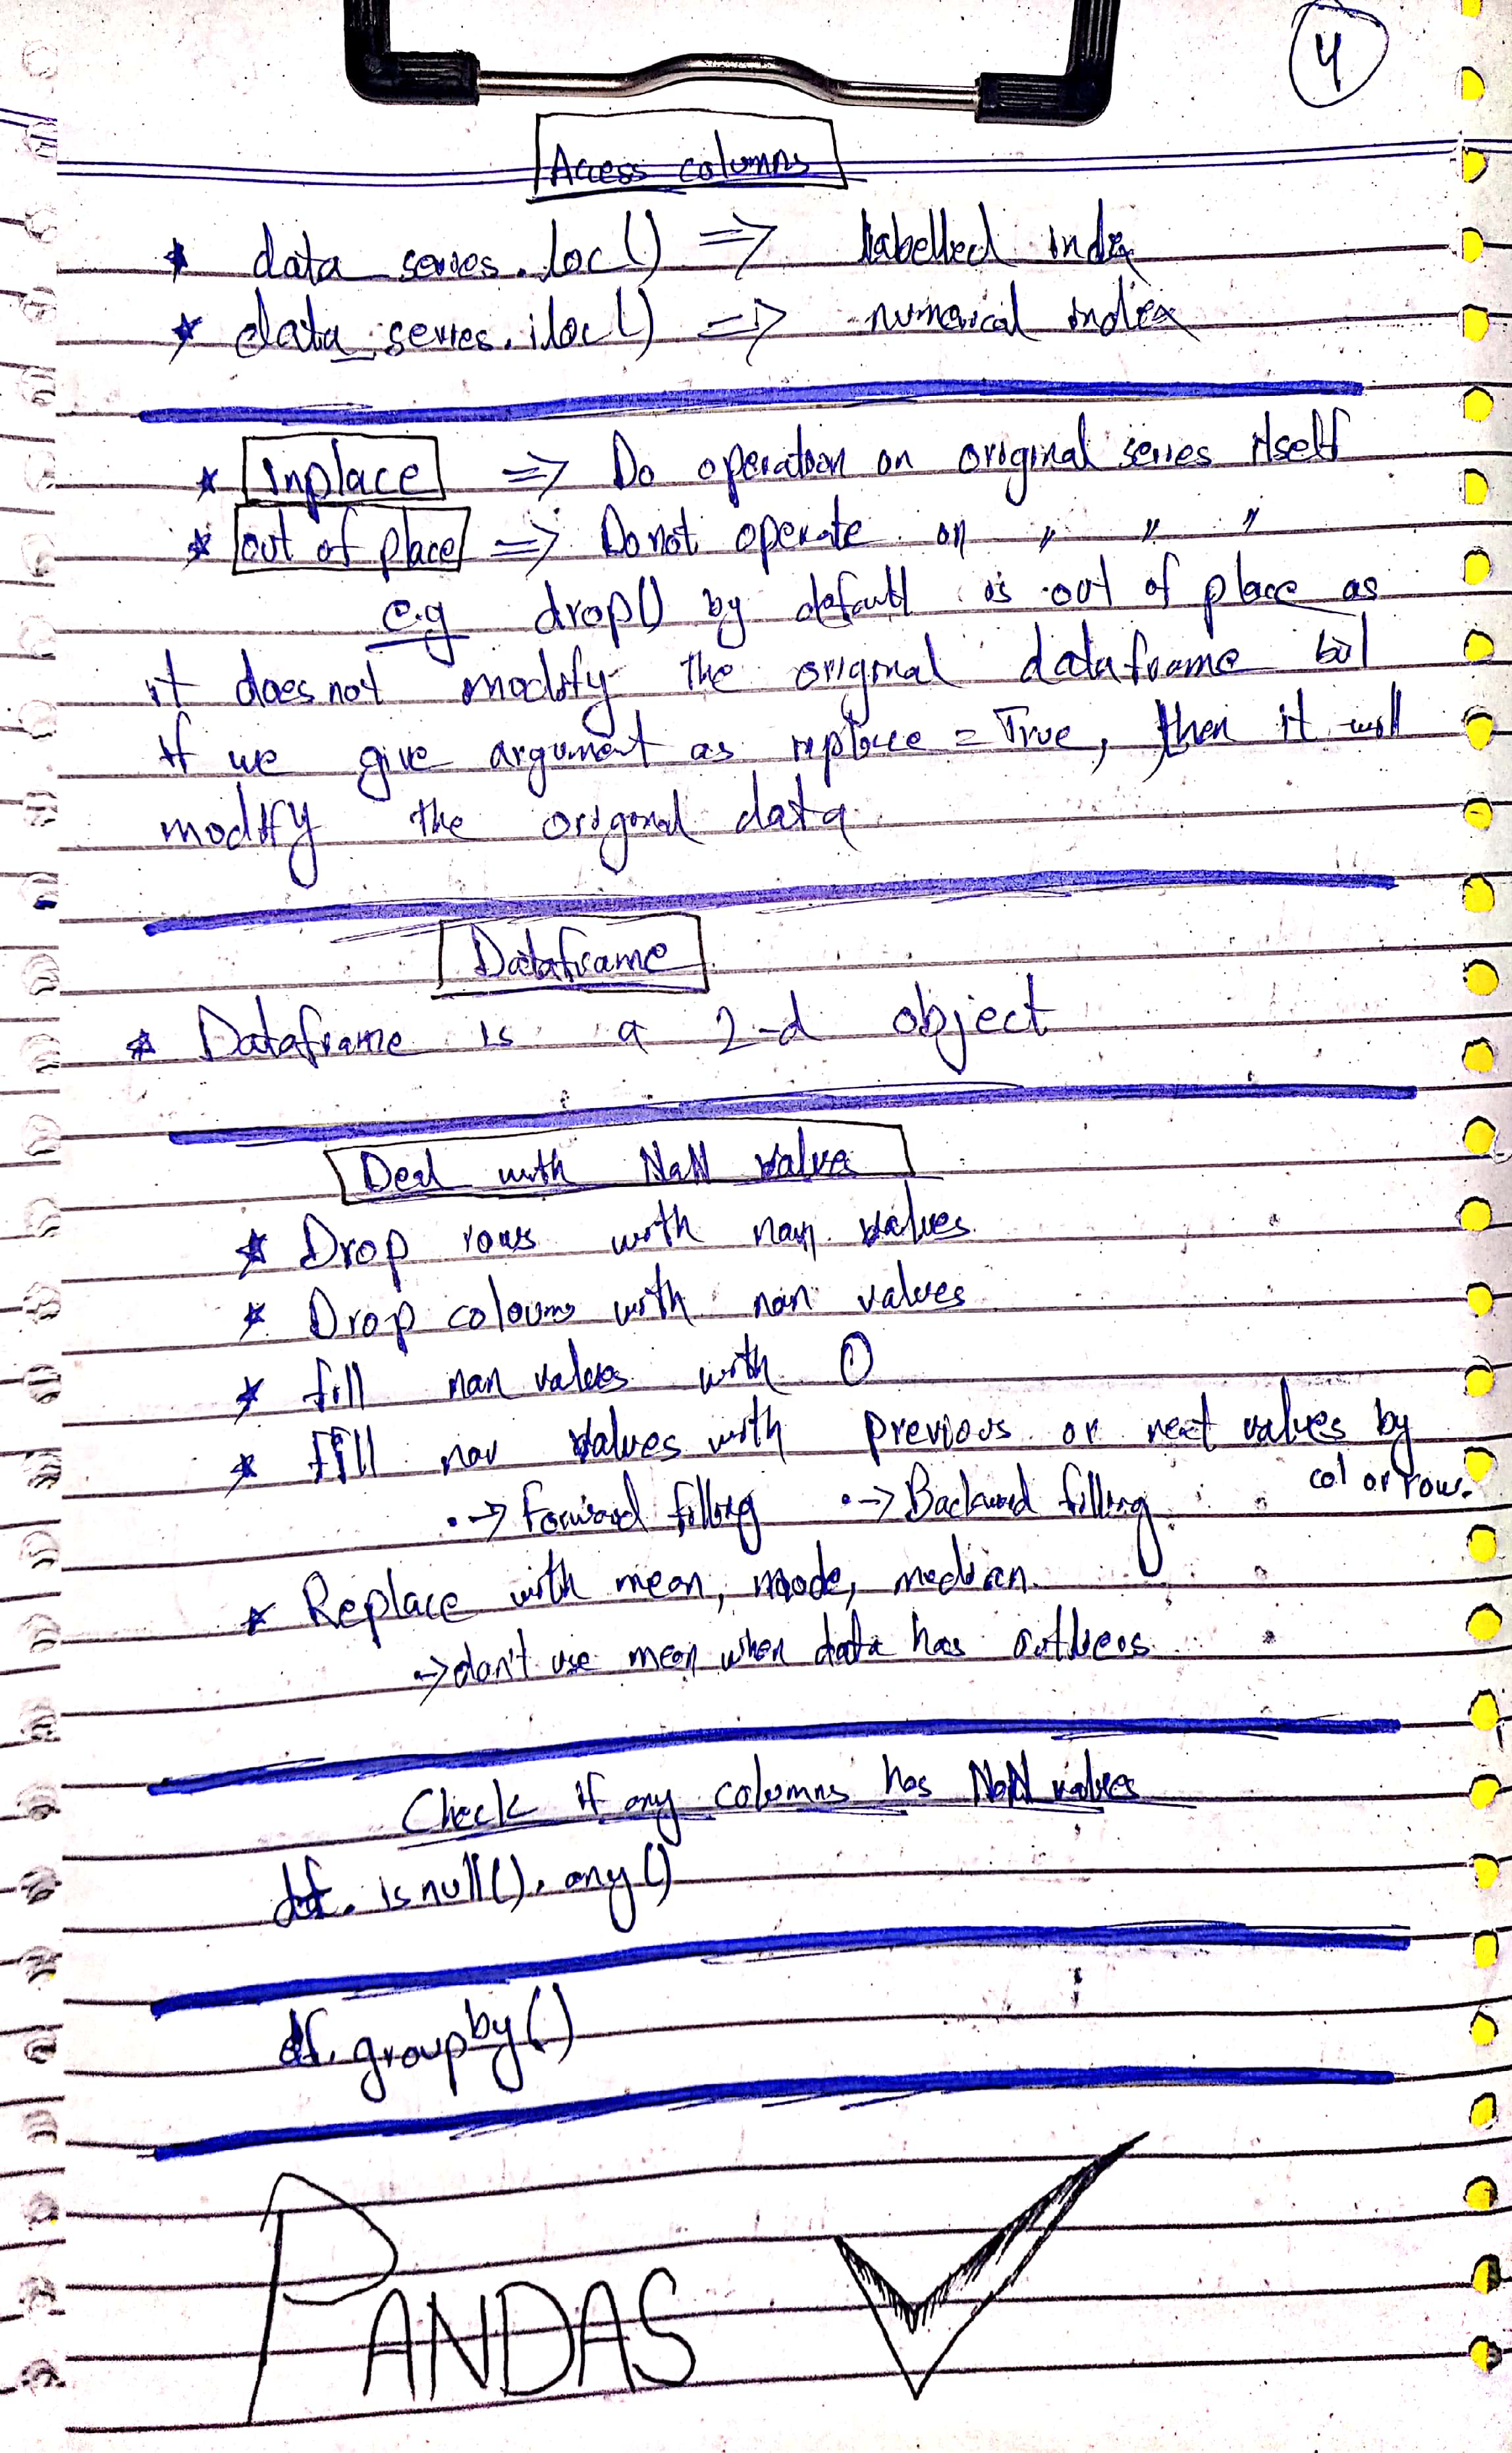 4
Access columns
* data series.loc() => labelled index
* data series.iloc() => numerical index
* Inplace => Do operation on original series itself
* out of place => Do not operate on " " "
e.g drop() by default is out of place as
it does not modify the original dataframe but
if we give argument as replace = True, then it will
modify the original data
Dataframe
* Dataframe is a 2-d object
Deal with NaN value
* Drop rows with nan values
* Drop coloums with nan values
* fill nan values with 0
* fill nav values with previous or next values by
col or row.
.-> Forward filling .-> Backward filling
* Replace with mean, mode, median
-> don't use mean when data has outliers
Check if any columns has NaN values
df.isnull().any()
df.groupby()
PANDAS